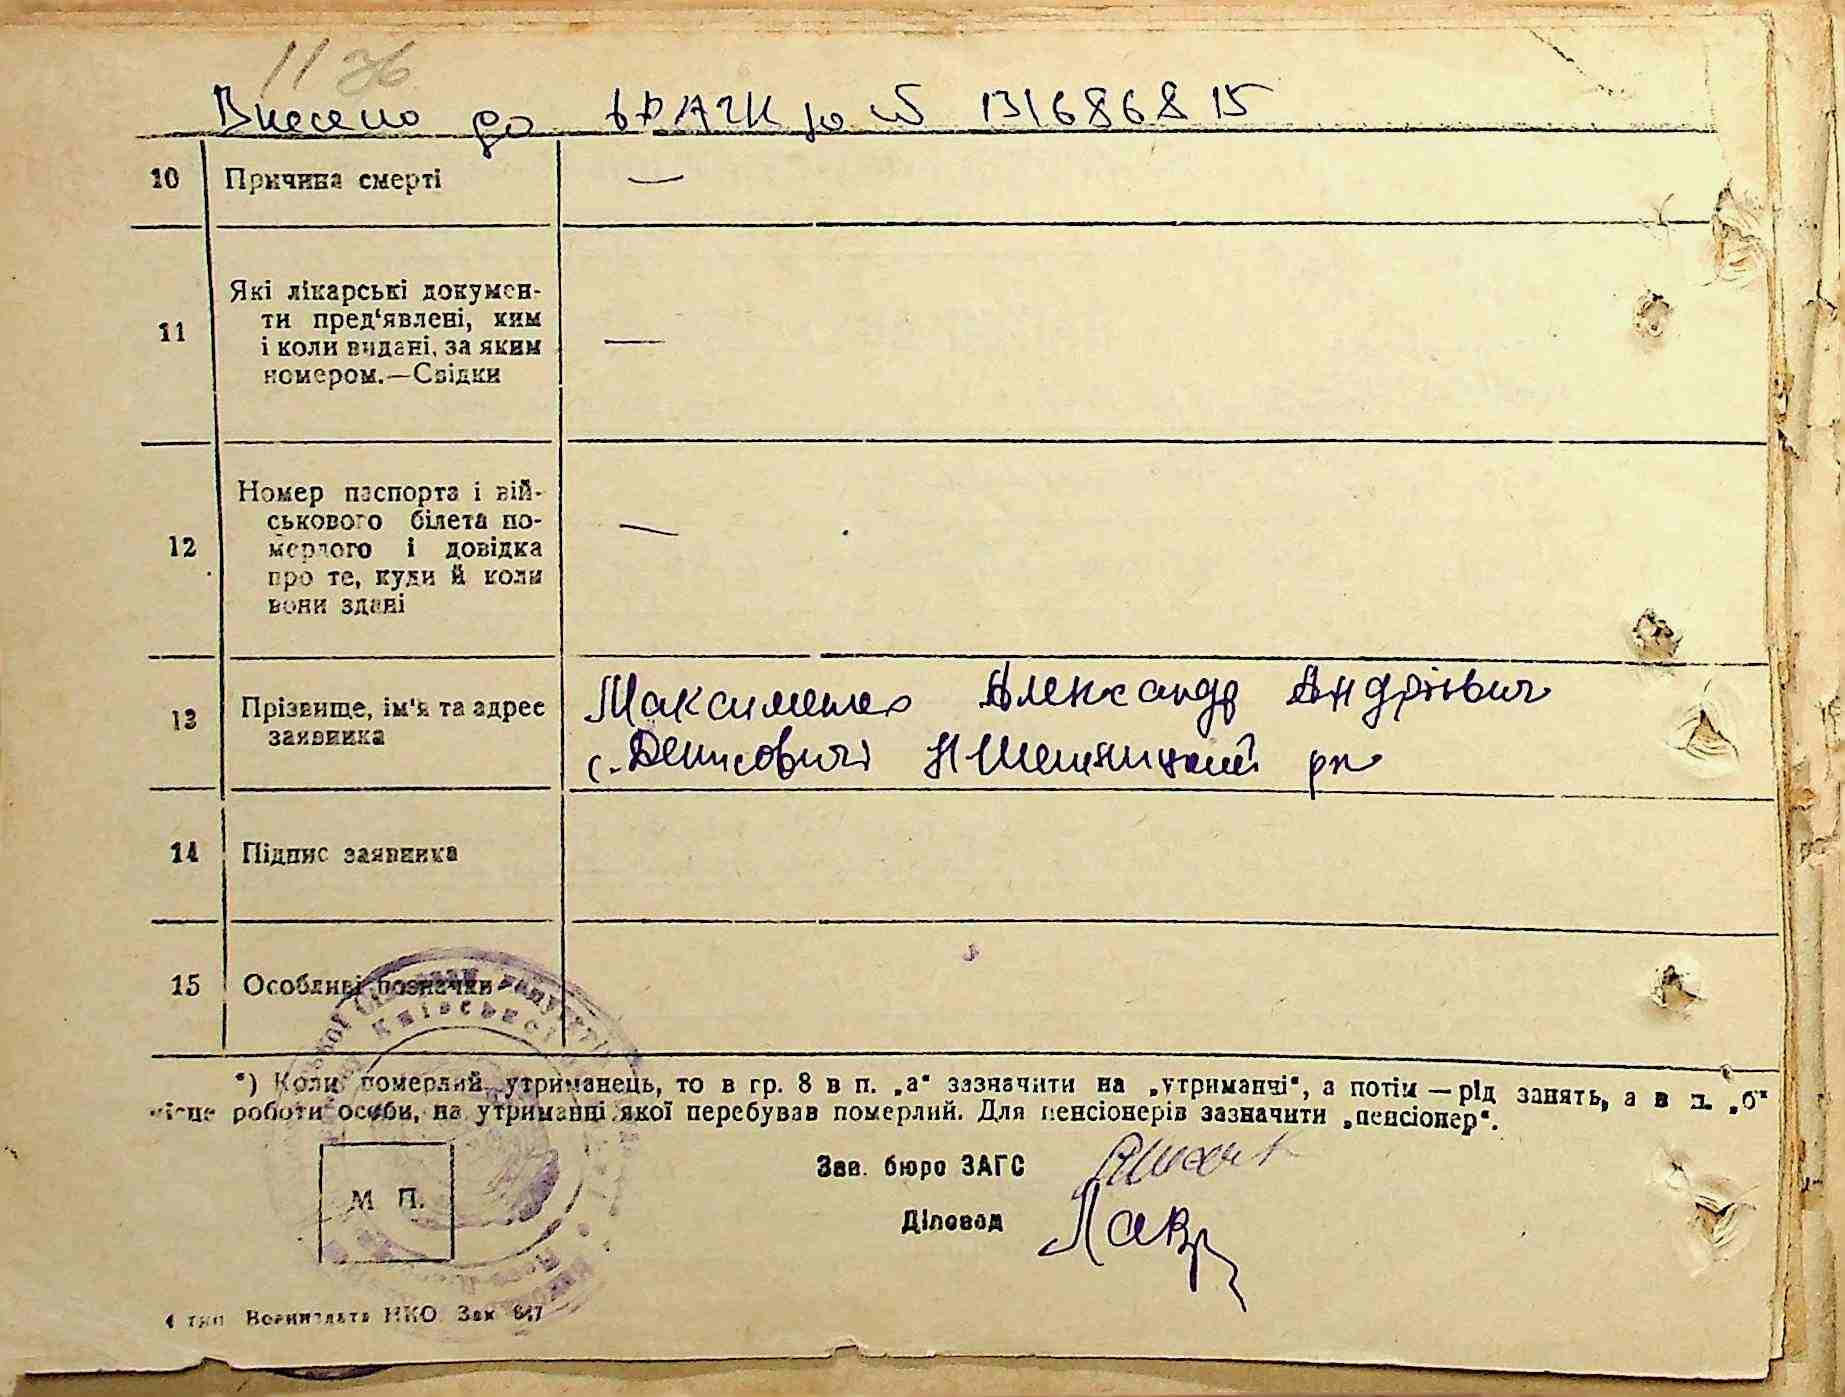 11 зв
Внесено до ДРАЦС за № 131686815
10 Причина смерті —
11 Які лікарські докумен-
ти пред'явлені, ким
і коли видані, за яким
номером.—Свідки —
12 Номер паспорта і вій-
ськового білета по-
мерлого і довідка
про те, куди й коли
вони здані —
13 Прізвище, ім'я та адрес
заявника
Максименко Александр Андрієвич
с. Денисовичі Н Шепилицкий рн
14 Підпис заявника
15 Особливі позначки
*) Коли померлий утриманець, то в гр. 8 в п. „а“ зазначити на „утриманчі“, а потім — рід занять, а в п. „б“
місце роботи особи, на утриманні якої перебував померлий. Для пенсіонерів зазначити „пенсіонер“.
Київської
М П.
Зав. бюро ЗАГС
Діловод Лавр
4 тип Воениздата НКО Зак 647